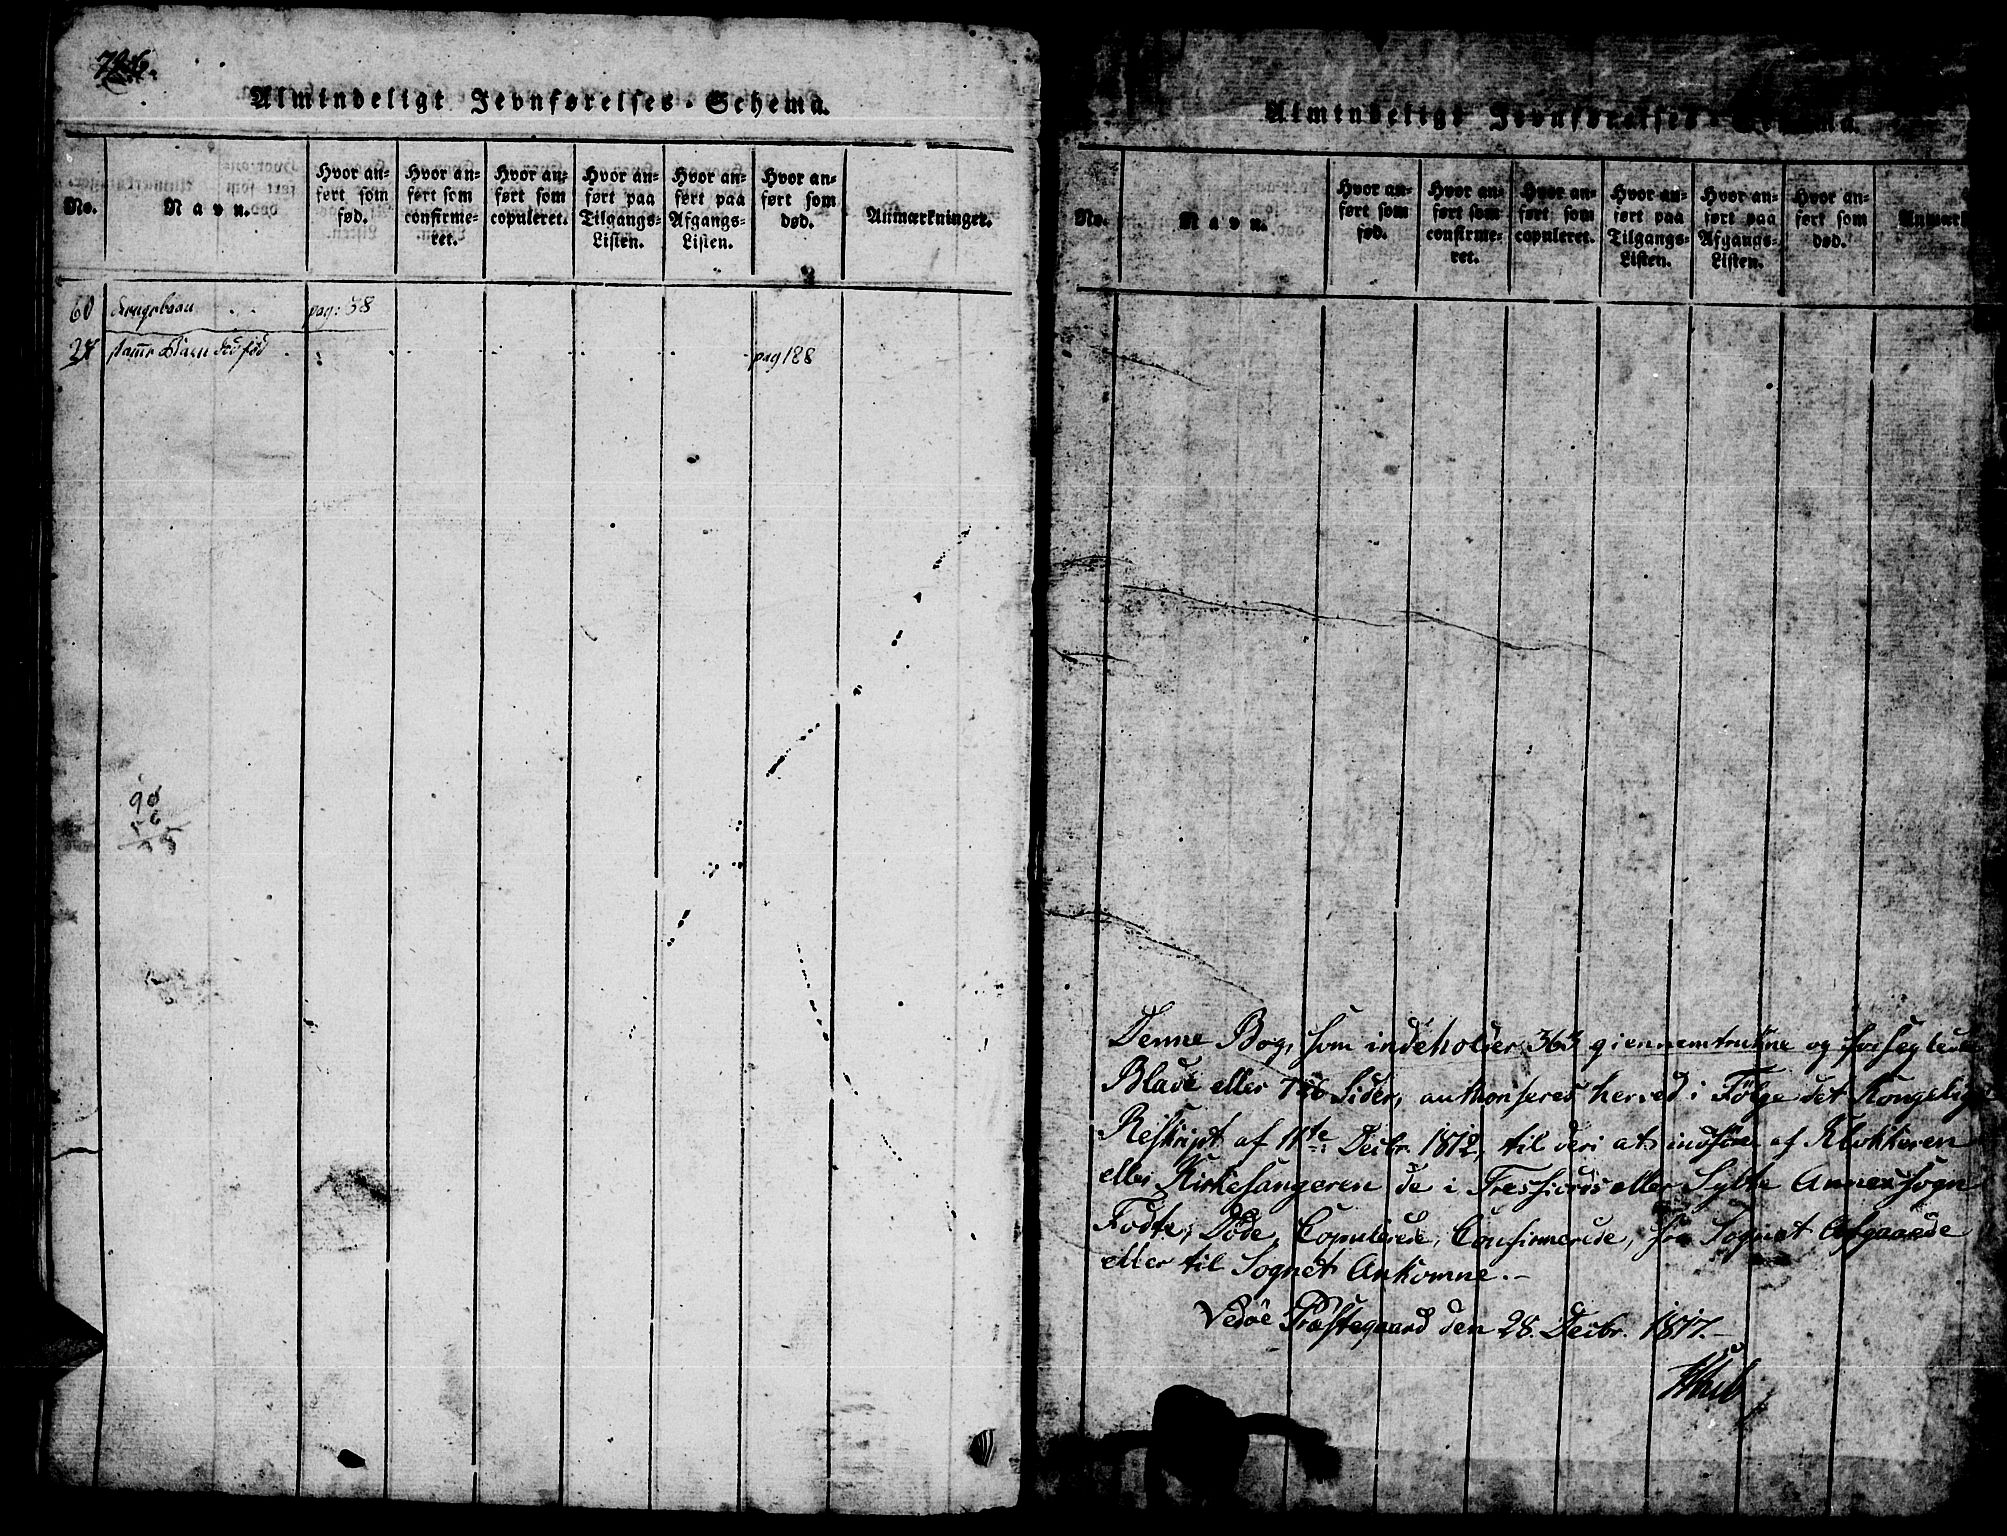 726.
Almindeligt Jevnførelses-Schema.
No.
Navn.
Hvor an-
ført som
fød.
Hvor an-
ført som
confirme-
ret.
Hvor an-
ført som
copuleret.
Hvor an-
ført paa
Tilgangs-
Listen.
Hvor an-
ført paa
Afgangs-
Listen.
Hvor an-
ført som
død.
Anmærkninger.
60 pag: 38
24 Barn død fød pag 188
90
6
Almindeligt Jevnførelses-Schema.
No.
Navn.
Hvor an-
ført som
fød.
Hvor an-
ført som
confirme-
ret.
Hvor an-
ført som
copuleret.
Hvor an-
ført paa
Tilgangs-
Listen.
Hvor an-
ført paa
Afgangs-
Listen.
Hvor an-
ført som
død.
Anmærk
Denne Bog, som indeholder 363 giennemtrukne og forseglede
Blade eller 726 Sider, authoriseres herved i Følge det Kongelige
Reskript af 11te Decbr. 1812, til deri at indføre af Klokkeren
eller Kirkesangeren de i Tresfiords eller Sylte Annexsogn
Fødte, Døde, Copulerede, Confirmerede, fra Sognet Afgaaede
eller til Sognet Ankomne.-
Vedøe Præstegaard den 28. Decbr. 1817.-